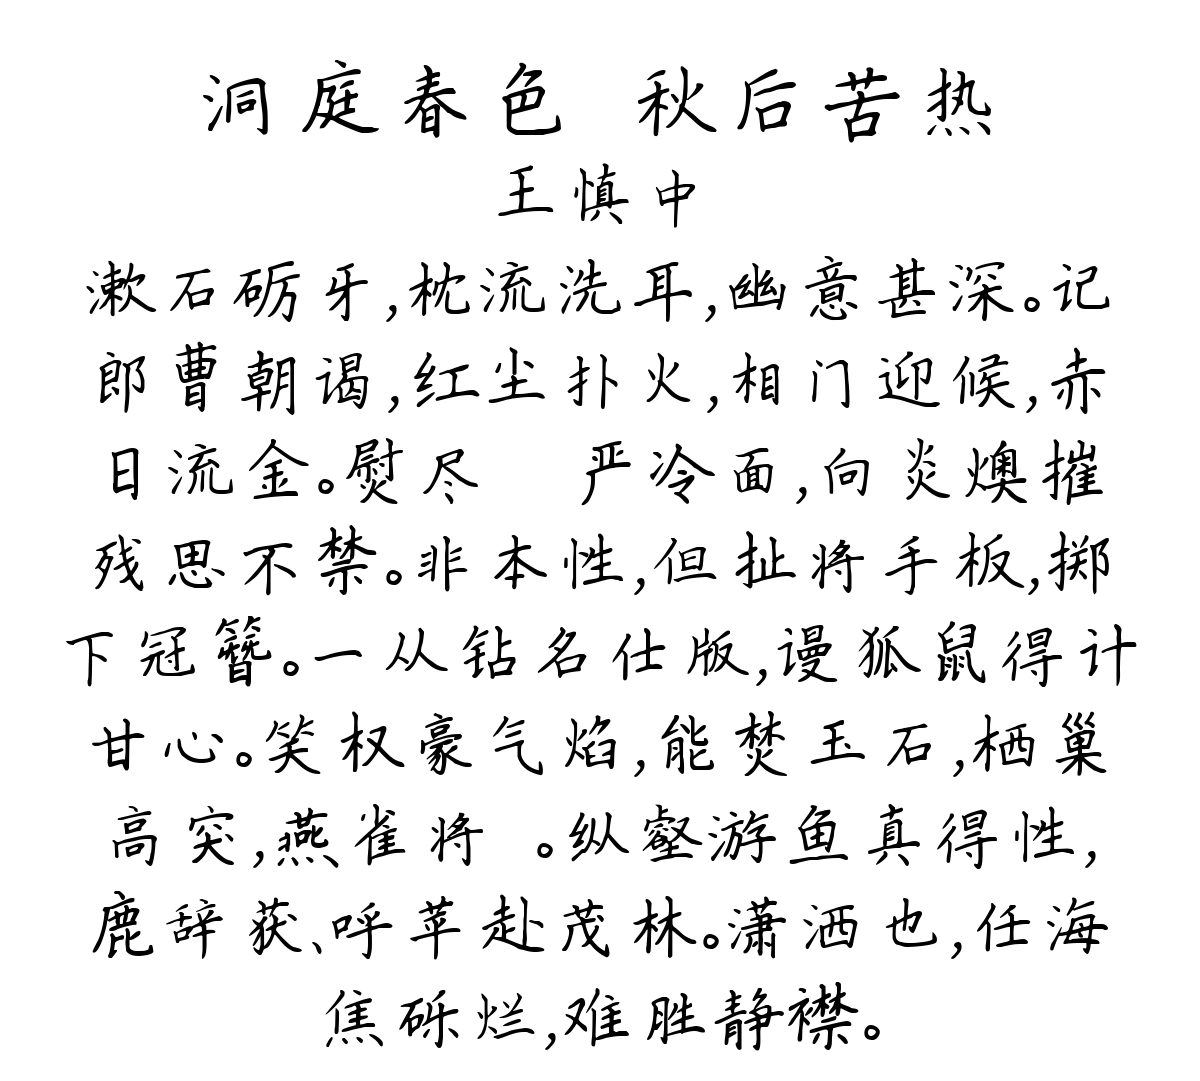 洞庭春色 秋后苦热
王慎中
漱石砺牙,枕流洗耳,幽意甚深。记
郎曹朝谒,红尘扑火,相门迎候,赤
日流金。熨尽 严冷面,向炎燠摧
残思不禁。非本性,但扯将手板,掷
下冠簪。一从钻名仕版,谩狐鼠得计
甘心。笑权豪气焰,能焚玉石,栖巢
高突,燕雀将 。纵壑游鱼真得性,
鹿辞获、呼苹赴茂林。潇洒也,任海
焦砾烂,难胜静襟。